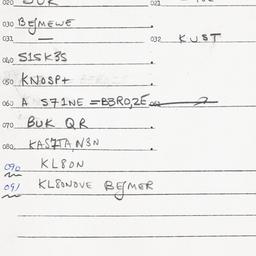 020 021
030 BEJMEWE
031 — 032 KUST
040 S1SK3S
050 KNOSP+
060 A S71NE =B3RO,ZE
070 BUK QR
080 KASZTA,N3N
090 KL80N
091 KL80NOVE BEJMER